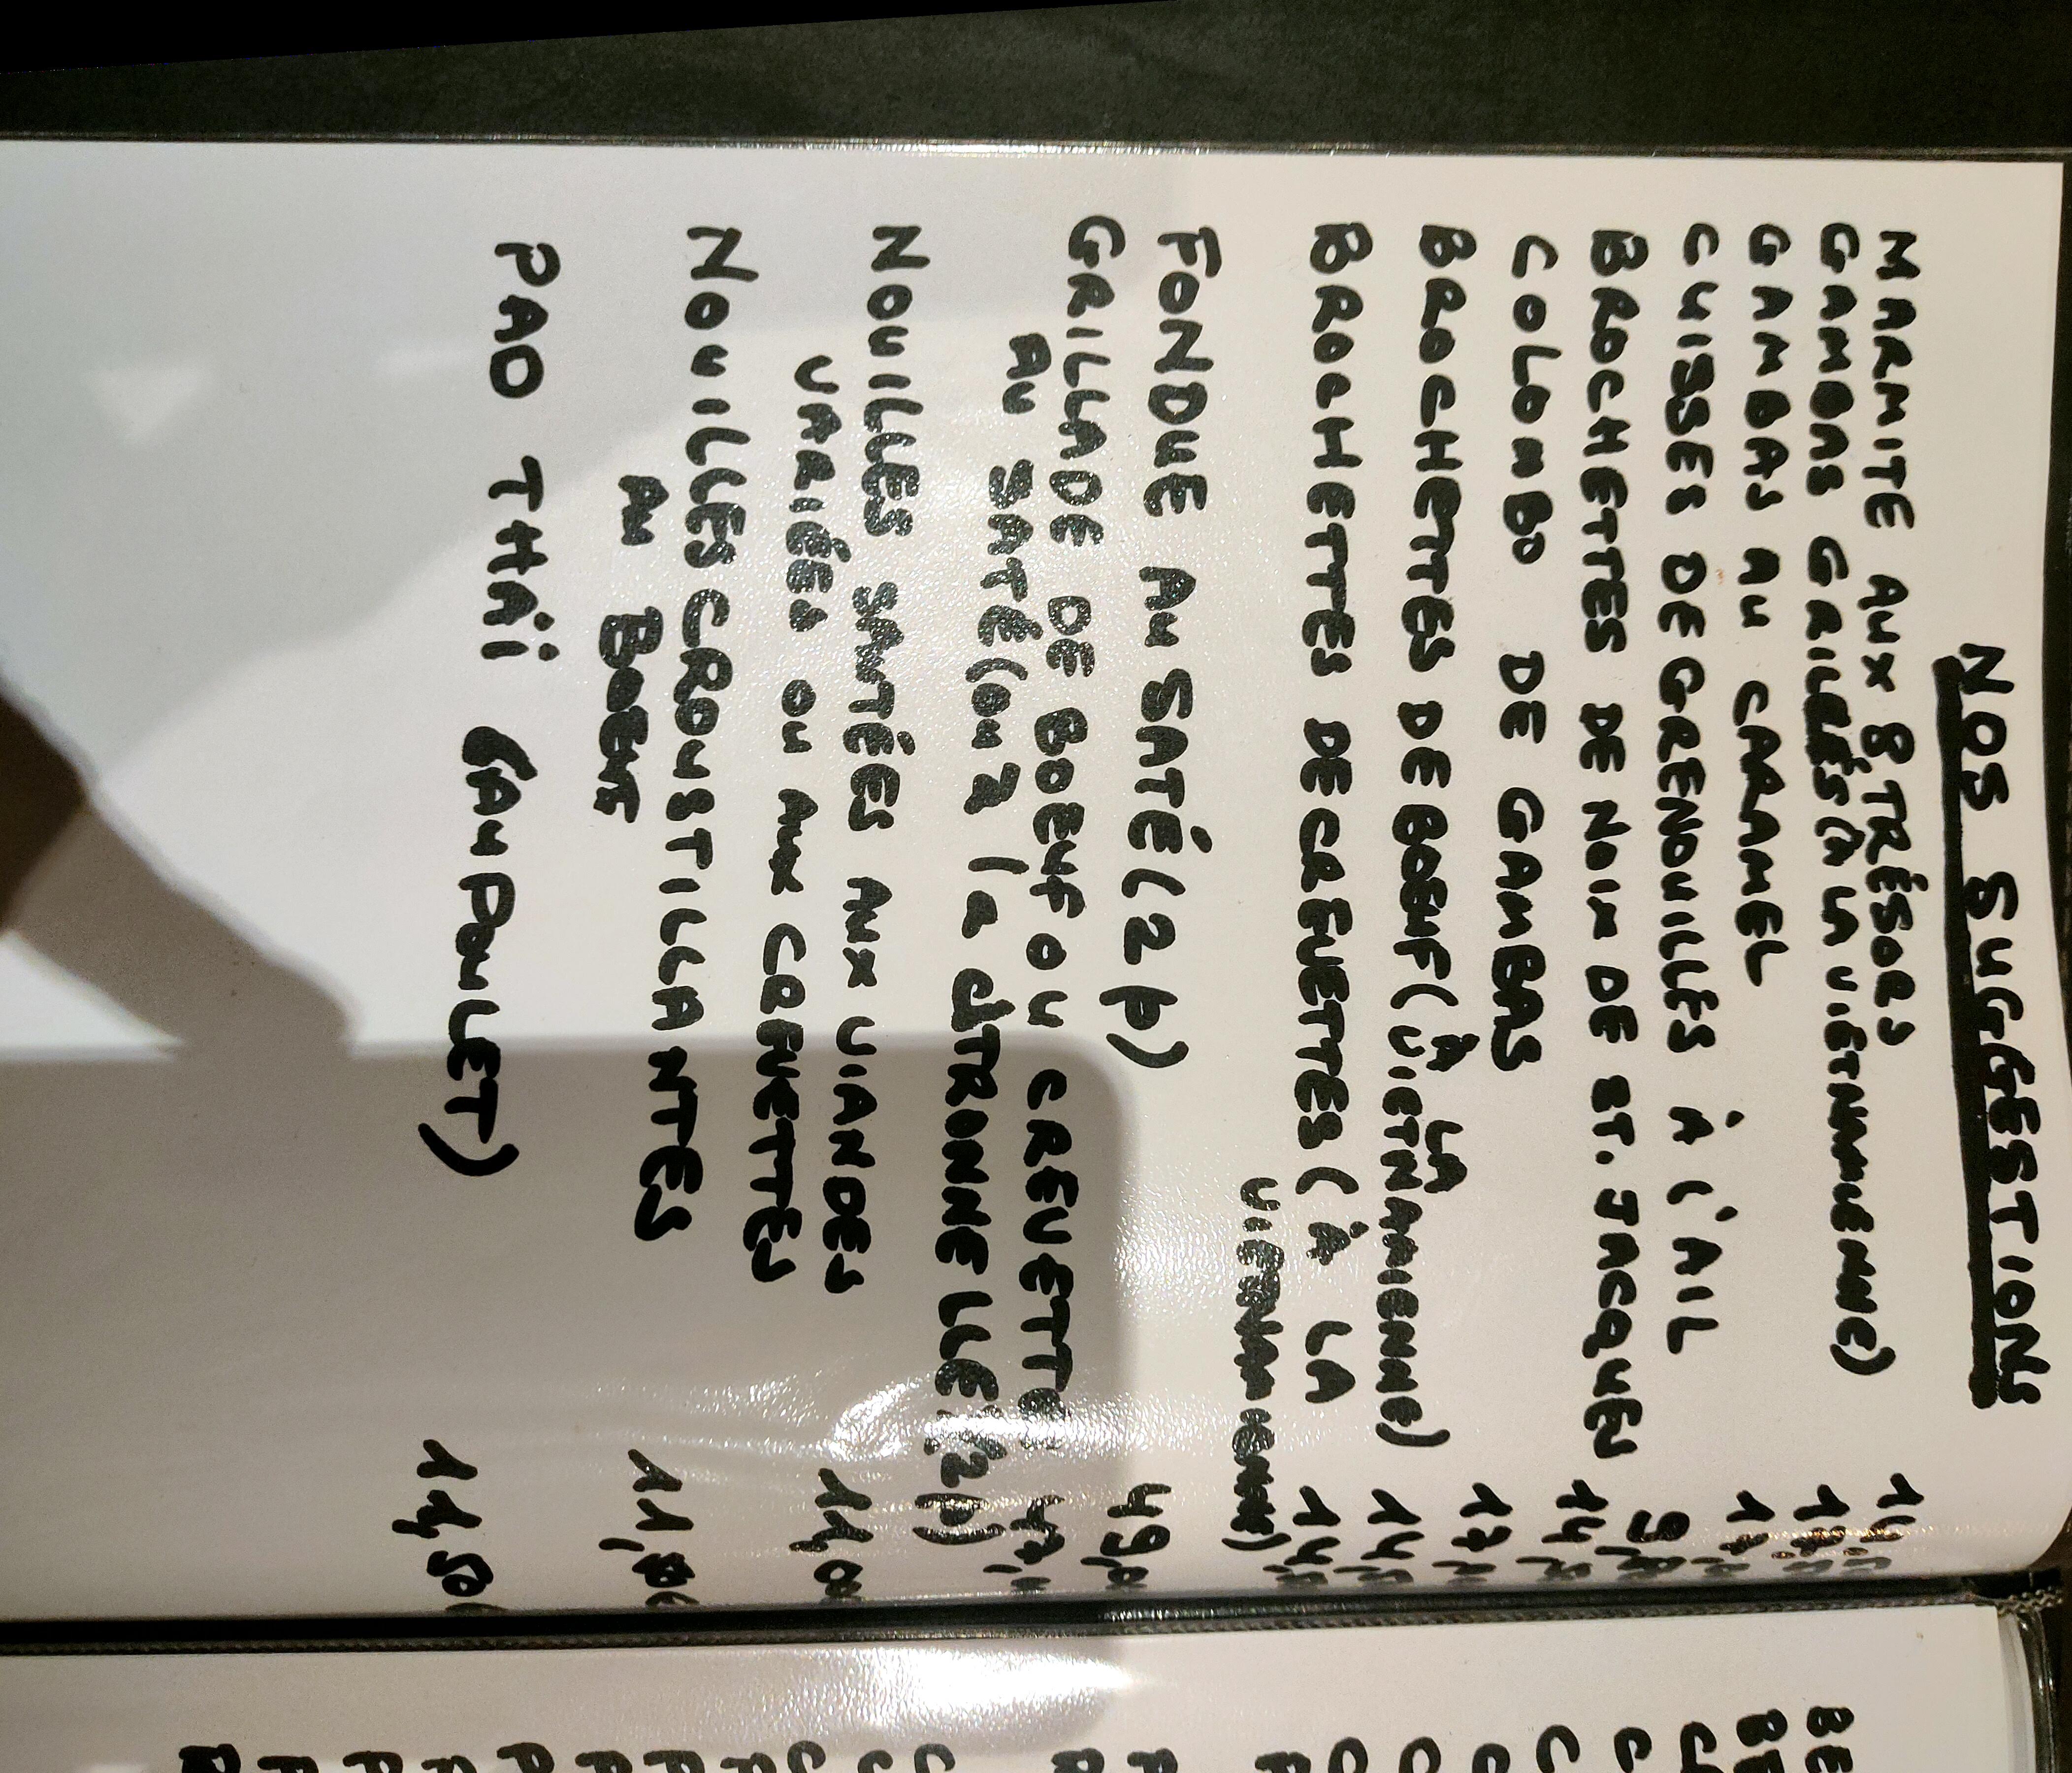 NOS SUGGESTIONS
MARMITE AUX 8 TRÉSORS 14
GAMBAS GRILLÉES (À LA VIETNAMIENNE)
GAMBAS AU CARAMEL
CUISSES DE GRENOUILLES À L'AIL 9,
BROCHETTES DE NOIX DE ST. JACQUES 14
COLOMBO DE GAMBAS 17
BROCHETTES DE BOEUF (À LA VIETNAMIENNE) 14
BROCHETTES DE CREVETTES (À LA 14
VIETNAMIENNE)
FONDUE AU SATÉ (2 p) 49,
GRILLADE DE BOEUF OU CREVETTES 47,
AU SATÉ (ou à la CITRONNELLE (2p)
NOUILLES SAUTÉES AUX VIANDES 11,00
VARIÉES OU AUX CREVETTES
NOUILLES CROUSTILLANTES 11,
AU BOEUF
PAD THAÏ (AU POULET) 11,50
BE
BE